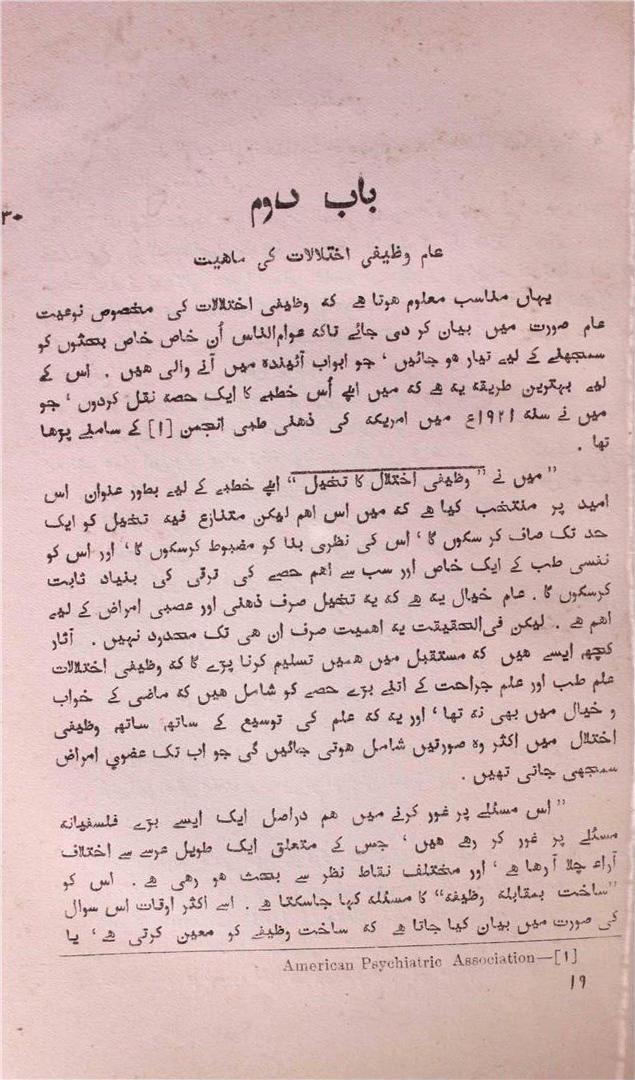 باب دوم
۳۰
عام وظیفی اختلالات کی ماهیت
یہاں مناسب معلوم هوتا هے که وظیفی اختلالات کی مخصوص نوعیت
عام صورت میں بیان کر دی جائے تاکه عوام‌الناس اُن خاص خاص بحثوں کو
سمجھنے کے لیے تیار هو جائیں ' جو ابواب آئینده میں آنے والی هیں . اس کے
لیے بہترین طریقه یه هے که میں اپنے اُس خطبے کا ایک حصه نقل کردوں ' جو
میں نے سنه ۱۹۲۱ع میں امریکه کی ذهنی طبی انجمن [۱] کے سامنے پڑها
تها .
"میں نے "وظیفی اختلال کا تخیل" اپنے خطبے کے لیے بطور عنوان اس
امید پر منتخب کیا هے که میں اس اهم لیکن متنازع فیه تخیل کو ایک
حد تک صاف کر سکوں گا ' اس کی نظری بنا کو مضبوط کرسکوں گا ' اور اس کو
نفسی طب کے ایک خاص اور سب سے اهم حصے کی ترقی کی بنیاد ثابت
کرسکوں گا . عام خیال یه هے که یه تخیل صرف ذهنی اور عصبی امراض کے لیے
اهم هے . لیکن فی‌الحقیقت یه اهمیت صرف ان هی تک محدود نہیں . آثار
کچھ ایسے هیں که مستقبل میں همیں تسلیم کرنا پڑے گا که وظیفی اختلالات
علم طب اور علم جراحت کے اتنے بڑے حصے کو شامل هیں که ماضی کے خواب
و خیال میں بهی نه تها ' اور یه که علم کی توسیع کے ساتھ ساتھ وظیفی
اختلال میں اکثر وه صورتیں شامل هوتی جائیں گی جو اب تک عضوی امراض
سمجھی جاتی تھیں .
"اس مسئلے پر غور کرنے میں هم دراصل ایک ایسے بڑے فلسفیانه
مسئلے پر غور کر رهے هیں ' جس کے متعلق ایک طویل عرصے سے اختلاف
آراء چلا آرها هے ' اور مختلف نقاط نظر سے بحث هو رهی هے . اس کو
"ساخت بمقابله وظیفه" کا مسئله کہا جاسکتا هے . اسے اکثر اوقات اس سوال
کی صورت میں بیان کیا جاتا هے که ساخت وظیفے کو معین کرتی هے ' یا
American Psychiatric Association—[۱]
۱۹